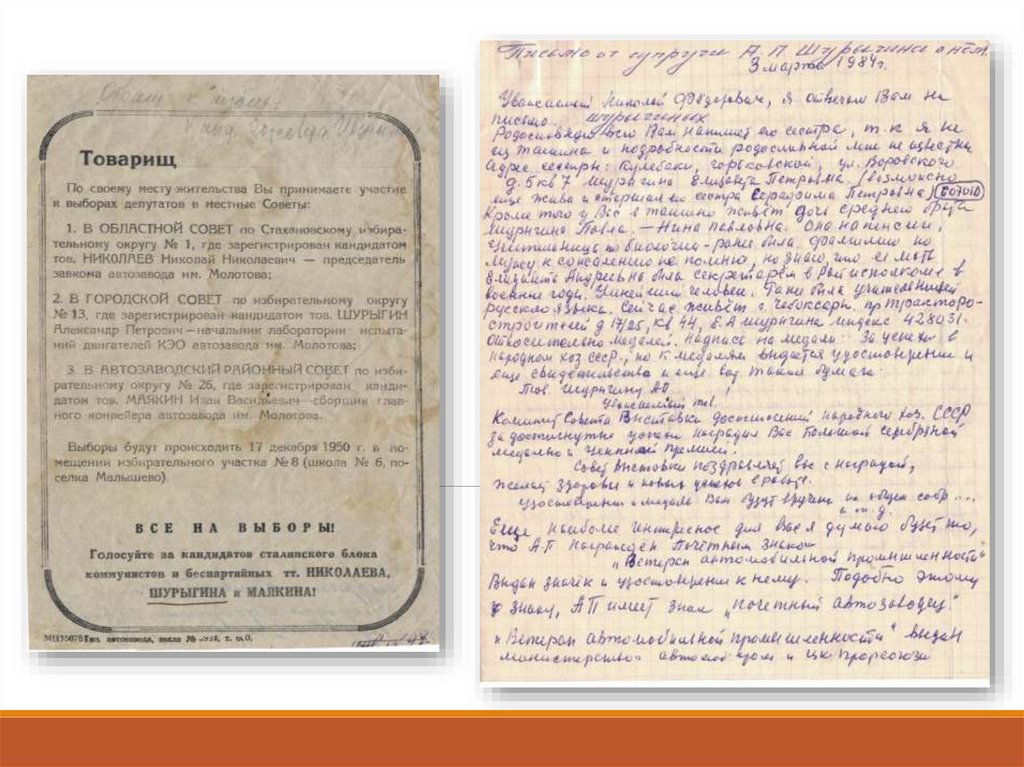 Товарищ
По своему месту жительства Вы принимаете участие
в выборах депутатов в местные Советы:
1. В ОБЛАСТНОЙ СОВЕТ по Стахановскому избира-
тельному округу № 1, где зарегистрирован кандидатом
тов. НИКОЛАЕВ Николай Николаевич — председатель
завкома автозавода им. Молотова;
2. В ГОРОДСКОЙ СОВЕТ по избирательному округу
№ 13, где зарегистрирован кандидатом тов. ШУРЫГИН
Александр Петрович — начальник лаборатории испыта-
ний двигателей КЭО автозавода им. Молотова;
3. В АВТОЗАВОДСКИЙ РАЙОННЫЙ СОВЕТ по изби-
рательному округу № 26, где зарегистрирован канди-
датом тов. МАЯКИН Иван Васильевич — сборщик глав-
ного конвейера автозавода им. Молотова.
Выборы будут происходить 17 декабря 1950 г. в по-
мещении избирательного участка № 8 (школа № 6, по-
селка Малышево)
ВСЕ НА ВЫБОРЫ!
Голосуйте за кандидатов сталинского блока
коммунистов и беспартийных тт. НИКОЛАЕВА,
ШУРЫГИНА и МАЯКИНА!
Тип. автозавода, заказ №
Письмо от супруги А. П. Шурыгина о нём.
3 марта 1984г.
Уважаемый Николай Фёдорович, я отвечаю Вам на
письмо.
Шурыгиных
Родословную всю Вам напишет его сестра, т. к я не
из Ташина и подробности родословной мне не известны
Адрес сестры: Кулебаки, Горьковской, ул. Воровского
д. 5 кв 7 Шурыгина Елизавета Петровна. (возможно
еще жива и старшая его сестра Серафима Петровна) 607010
Кроме того у Вас в Ташино живёт дочь среднего брата
Шурыгина Павла. — Нина Павловна. Она на пенсии,
учительница по биологии - ранее была. Фамилию по
мужу к сожалению не помню, но знаю, что её мать
Елизавета Андреевна была секретарём в Райисполкоме в
военные годы. Умнейший человек. Ранее была учительницей
русского языка. Сейчас живёт г. Чебоксары пр Тракторо-
строителей д 17/25, кв 44, Е. А Шурыгина индекс 428031.
Относительно медалей. Надпись на медали: За успехи в
народном хоз СССР, но к медалям выдаётся удостоверение и
еще свидетельства и еще вот такая бумага:
Тов. Шурыгину А П !
Уважаемый тов.
Комитет Совета Выставки достижений народного хоз. СССР
за достигнутые успехи наградил Вас Большой серебряной
медалью и ценной премией.
Совет Выставки поздравляет вас с наградой,
желает здоровья и новых успехов в работе.
Удостоверение и медаль Вам будут вручены на общем собр....
и т. д.
Еще наиболее интересное для Вас я думаю будет то,
что АП награждён Почётным знаком
„Ветеран автомобильной промышленности"
Выдан значёк и удостоверение к нему. Подобно этому
знаку, АП имеет знак „Почетный автозаводец."
„Ветеран автомобильной промышленности" выдан
министерством автомоб пром и ЦК профсоюза